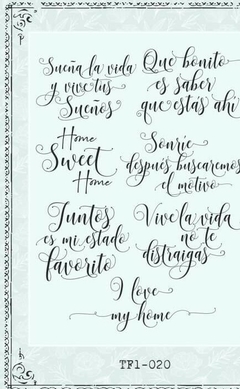 Sueña la vida
y vive tus
Sueños
Que bonito
es saber
que estás ahí
Home
Sweet
Home
Sonríe
después buscaremos
el motivo
Juntos
es mi estado
favorito
Vive la vida
no te
distraigas
I love
my home
TF1-020